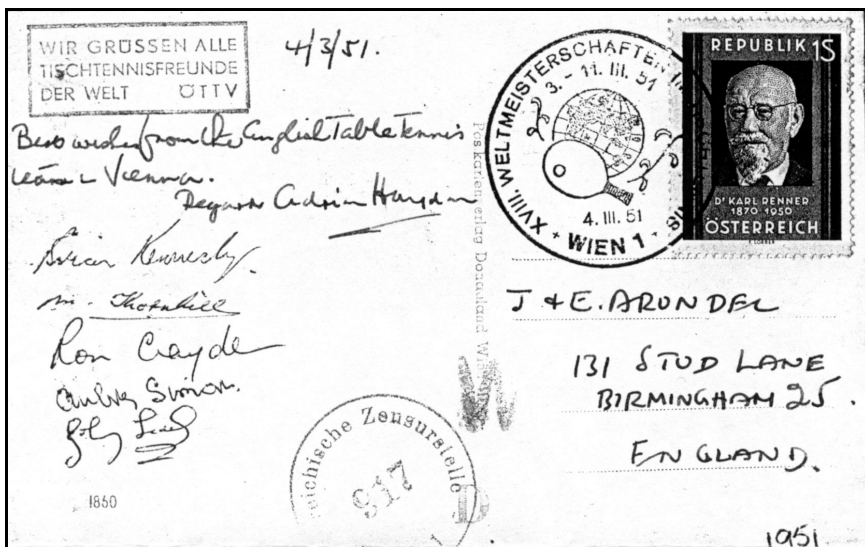 WIR GRÜSSEN ALLE
TISCHTENNISFREUNDE
DER WELT ÖTTV
4/3/51.
Best wishes from the English Table Tennis
team in Vienna.
Regards Adrian Haydon
Brian Kennedy.
M. Thornhill
Ron Crayden
Aubrey Simons.
1860
Postkartenverlag Donauland Wien
XVIII. WELTMEISTERSCHAFTEN IM
3. - 11. III. 51
4. III. 51
WIEN 1
REPUBLIK 1S
DR KARL RENNER
1870 1950
ÖSTERREICH
J & E. ARUNDEL
131 STUD LANE
BIRMINGHAM 25.
ENGLAND.
reichische Zensurstelle
917
1951